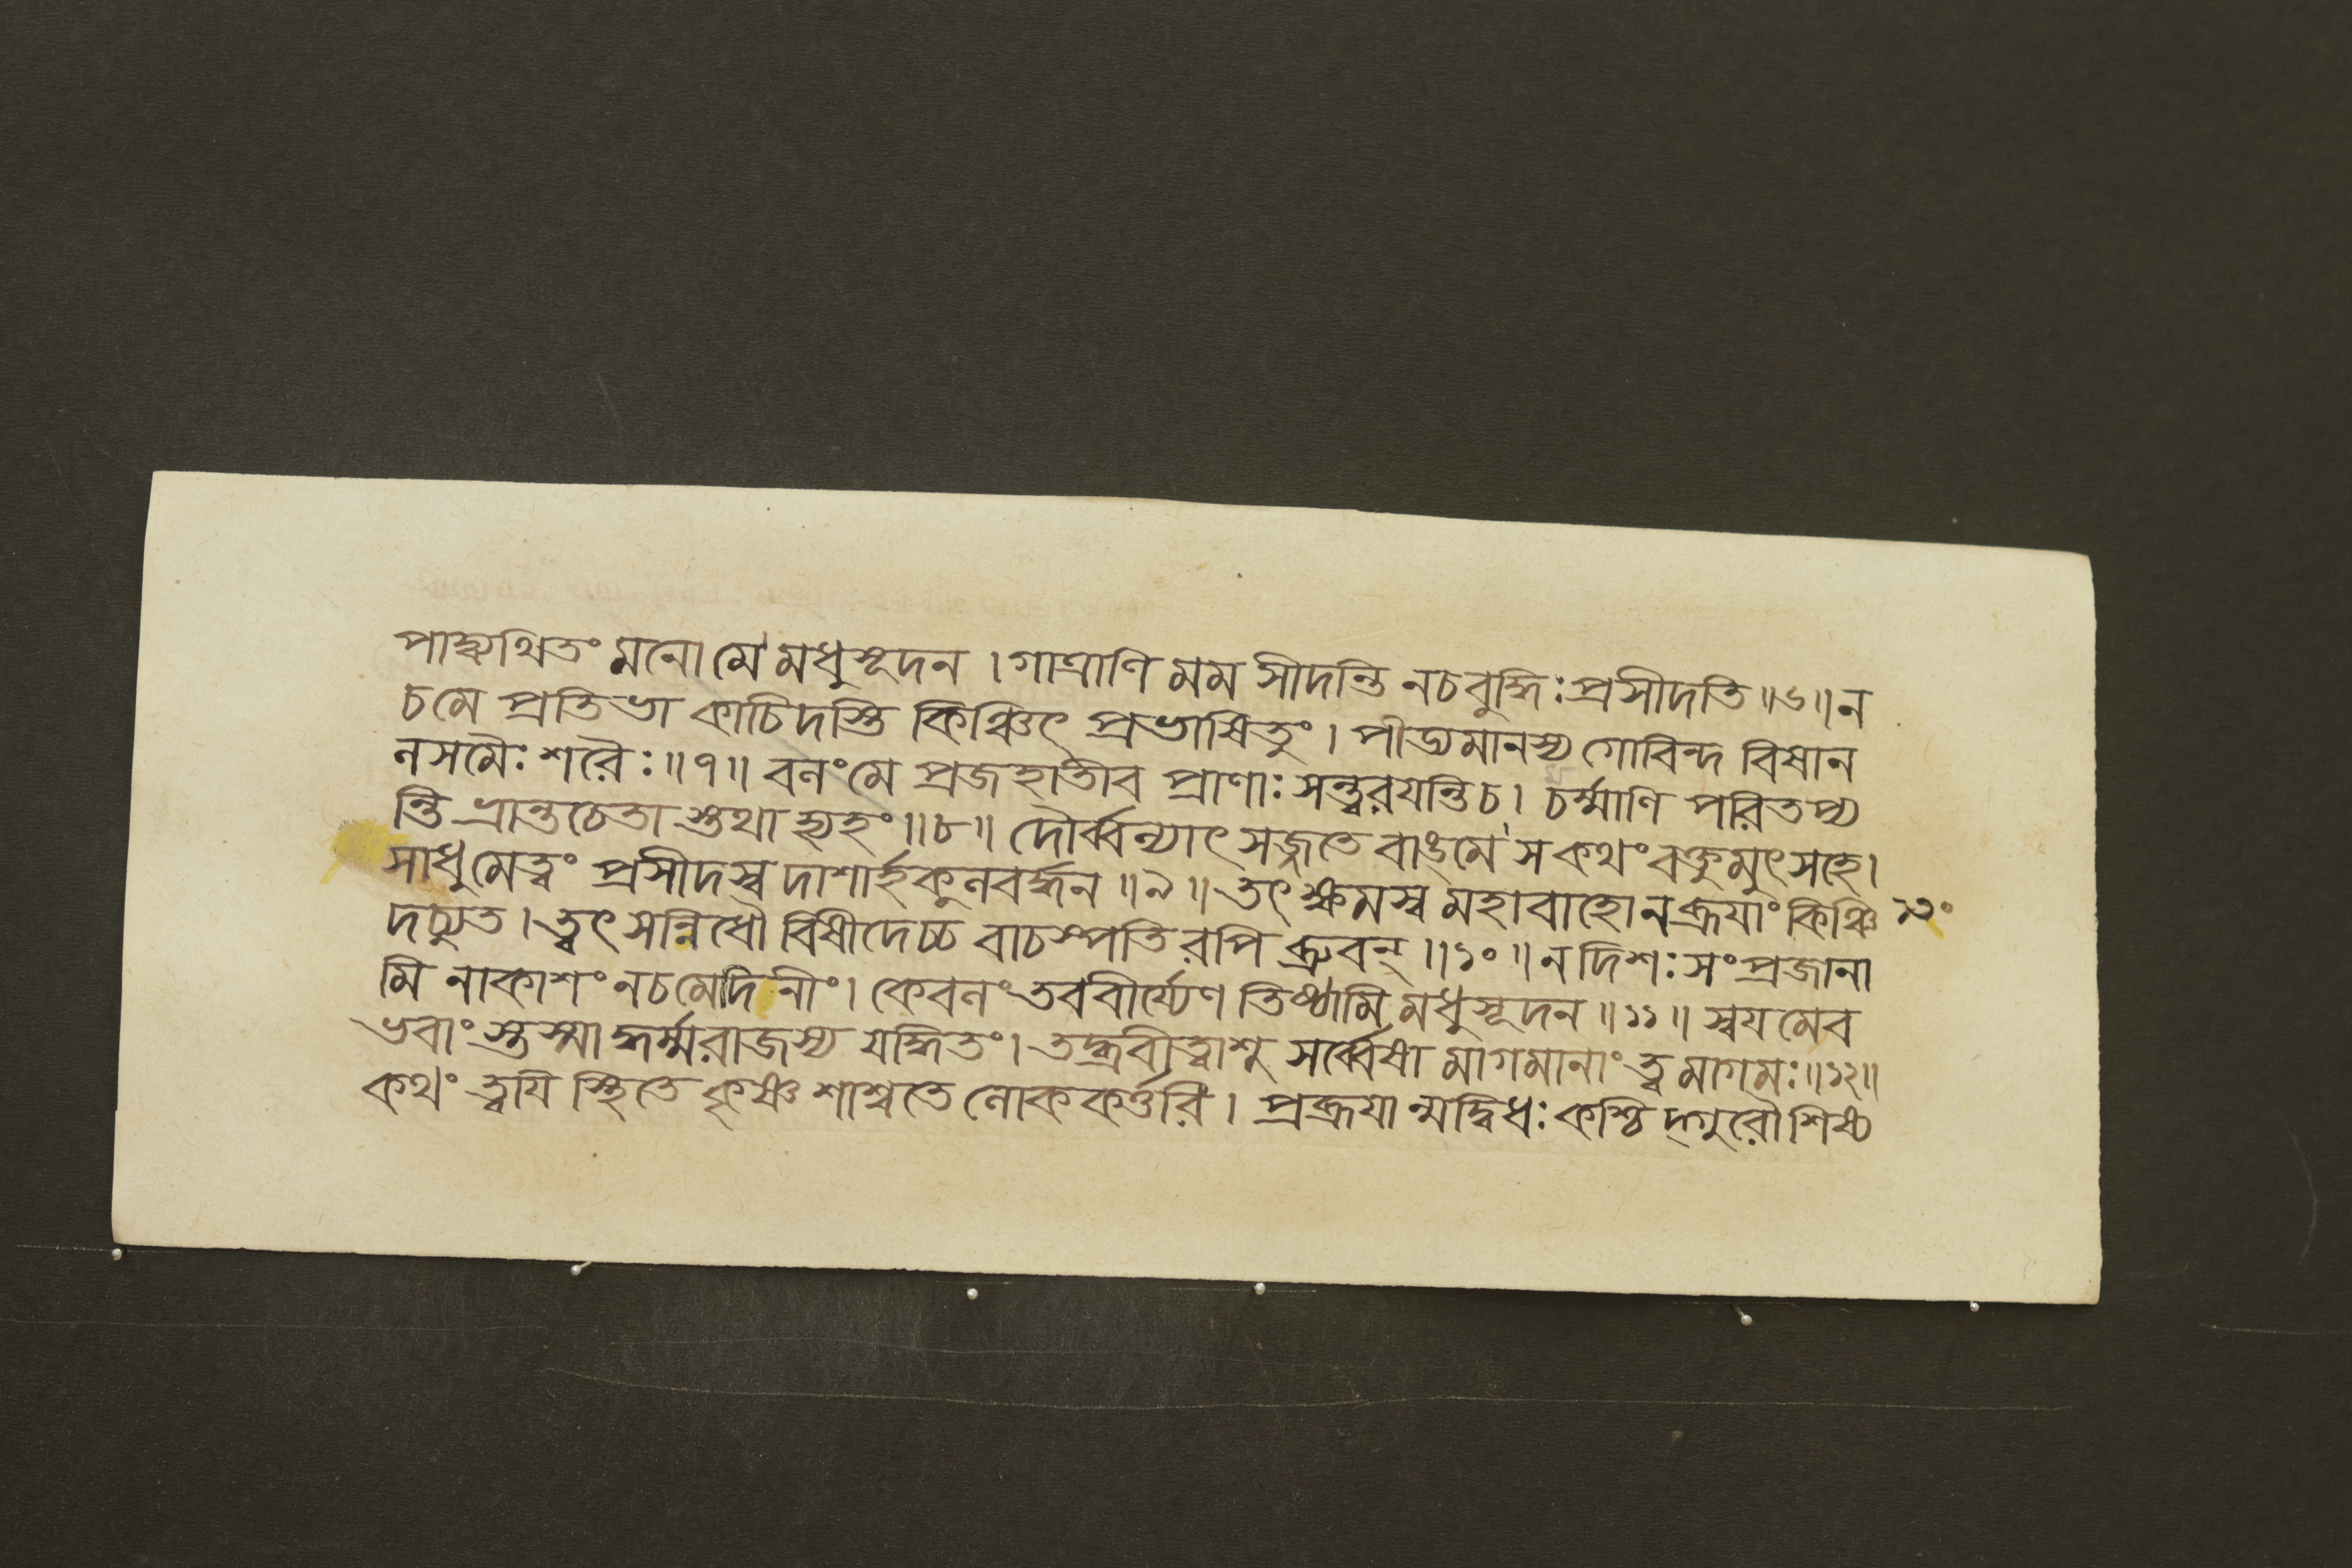 পাদ্ব্যথিতং মনো মে মধুসূদন । গাত্রাণি মম সীদন্তি নচবুদ্ধিঃ প্রসীদতি ॥৬॥ ন
চমে প্রতিভা কাচিদস্তি কিঞ্চিৎ প্রভাষিতুং । পীড্যমানস্য গোবিন্দ বিষান
নসমৈঃ শরৈঃ ॥৭॥ বলংমে প্রজহাতীব প্রাণাঃ সন্ত্বরয়ন্তিচ । চর্ম্মাণি পরিতপ্য
ন্তি ভ্রান্তচেতা স্তথা হ্যহং ॥৮॥ দৌর্ব্বল্যাৎ সজ্জতে বাঙ্মে স কথং বক্তুমুৎসহে ।
সাধুমেত্বং প্রসীদস্ব দাশার্হকুলবর্দ্ধন ॥৯॥ তৎ ক্ষমস্ব মহাবাহো ন ব্রূয়াং কিঞ্চি
দচ্যুত । ত্বৎ সন্নিধৌ বিষীদেচ্চ বাচস্পতিরপি ব্রুবন্ ॥১০॥ ন দিশঃ সংপ্রজানা
মি নাকাশং নচমেদিনীং । কেবলং তববীর্য্যেণ তিষ্ঠামি মধুসূদন ॥১১॥ স্বয়মেব
ভবাং স্তস্মা দ্ধর্ম্মরাজস্য যদ্ধিতং । তদ্ব্রবীত্বাশু সর্ব্বেষা মাগমানাং ত্বমাগমঃ ॥১২॥
কথং ত্বয়ি স্থিতে কৃষ্ণ শাশ্বতে লোককর্ত্তরি । প্রব্রূয়ান্মদ্বিধঃ কশ্চিদ্গুরৌ শিষ্য